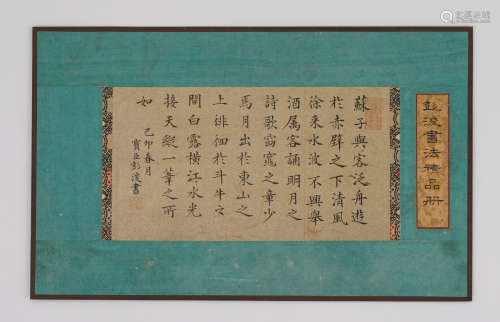 彭浚書法精品冊
蘇子與客泛舟遊
於赤壁之下清風
徐來水波不興舉
酒属客誦明月之
詩歌窈窕之章少
焉月出於東山之
上徘徊於斗牛之
間白露橫江水光
接天縱一葦之所
如
乙卯春月
寶臣彭浚書